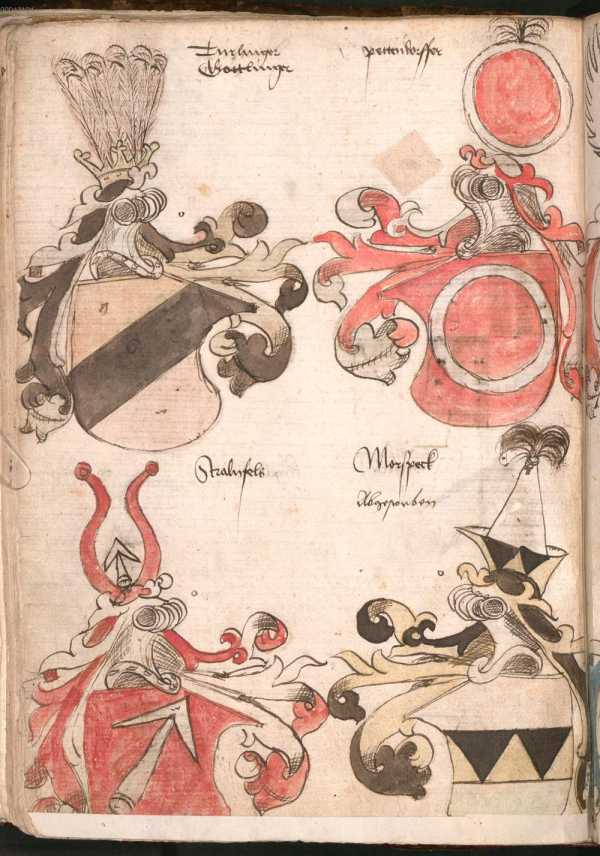 Turlinger
Gottlinger
pettendorffer
Stralnfels
Morspeck
Abgestorben